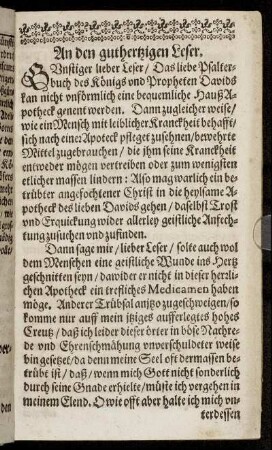 An den guthertzigen Leser.
GÜnstiger lieber Leser / Das liebe Psalter-
buch des Königs vnd Propheten Davids
kan nicht vnförmlich eine bequemliche Hauß-A-
potheck genent werden. Dann zugleicher weise /
wie ein Mensch mit leiblicher Kranckheit behafft /
sich nach einer Apoteck pfleget zusehnen / bewehrte
Mittel zugebrauchen / die ihm seine Kranckheit
entweder mögen vertreiben oder zum wenigsten
etlicher massen lindern: Also mag warlich ein be-
trübter angefochtener Christ in die heylsame A-
potheck des lieben Davids gehen / daselbst Trost
vnd Erquickung wider allerley geistliche Anfech-
tung zusuchen vnd zufinden.
Dann sage mir / lieber Leser / solte auch wol
dem Menschen eine geistliche Wunde ins Hertz
geschnitten seyn / dawider er nicht in dieser herrli-
chen Apotheck ein trefliches Medicamen haben
möge. Anderer Trübsal anitzo zugeschweigen / so
komme nur auff mein itziges aufferlegtes hohes
Creutz / daß ich leider dieser örter in böse Nachre-
de vnd Ehrenschmähung vnverschuldeter weise
bin gesetzet / da denn meine Seel oft dermassen be-
trübt ist / daß / wenn mich Gott nicht sonderlich
durch seine Gnade erhielte / müste ich vergehen in
meinem Elend. O wie offt aber halte ich mich vn-
terdessen